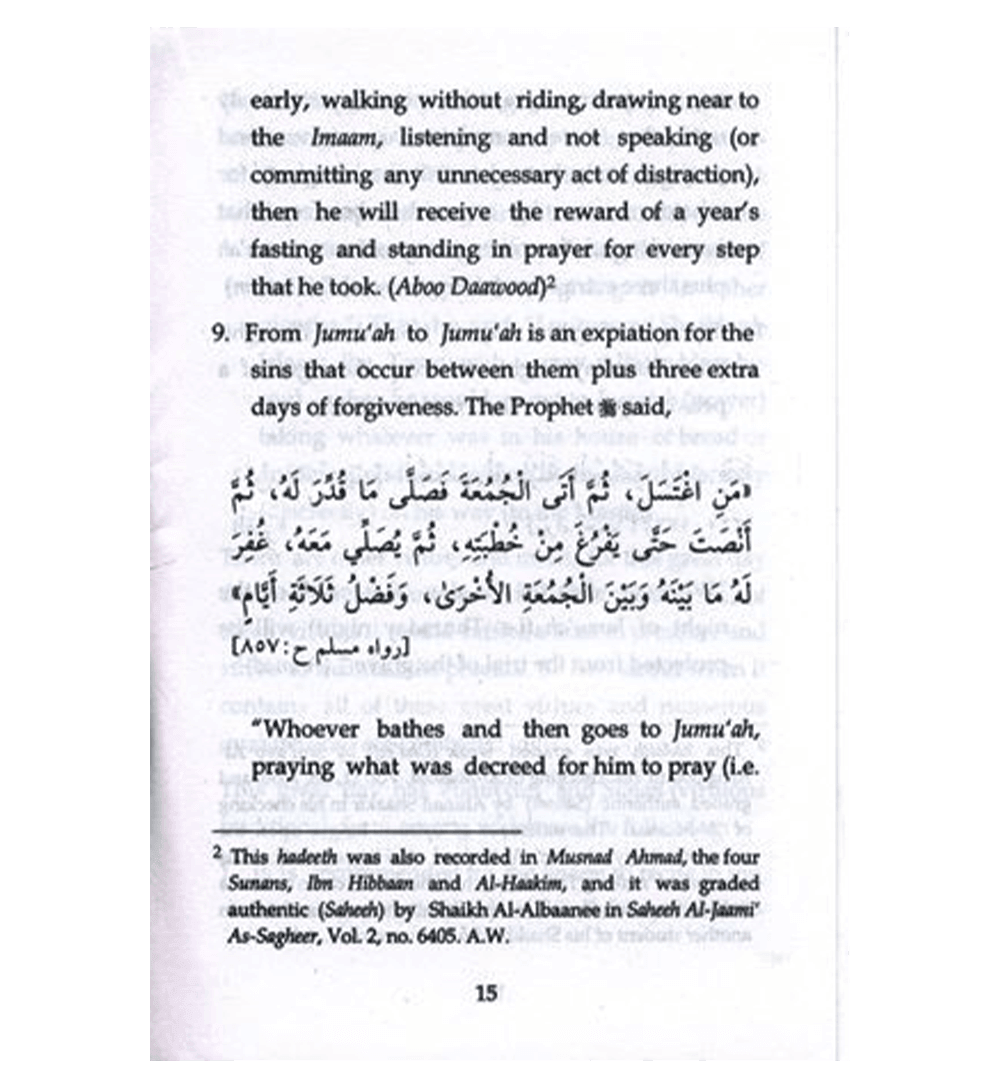 early, walking without riding, drawing near to
the Imaam, listening and not speaking (or
committing any unnecessary act of distraction),
then he will receive the reward of a year's
fasting and standing in prayer for every step
that he took. (Aboo Daawood)²
9. From Jumu‘ah to Jumu‘ah is an expiation for the
sins that occur between them plus three extra
days of forgiveness. The Prophet ﷺ said,
«مَنِ اغْتَسَلَ، ثُمَّ أَتَى الْجُمُعَةَ فَصَلَّى مَا قُدِّرَ لَهُ، ثُمَّ
أَنْصَتَ حَتَّى يَفْرُغَ مِنْ خُطْبَتِهِ، ثُمَّ يُصَلِّي مَعَهُ، غُفِرَ
لَهُ مَا بَيْنَهُ وَبَيْنَ الْجُمُعَةِ الأُخْرَى، وَفَضْلُ ثَلَاثَةِ أَيَّامٍ»
[رواه مسلم ح:٨٥٧]
“Whoever bathes and then goes to Jumu‘ah,
praying what was decreed for him to pray (i.e.
² This hadeeth was also recorded in Musnad Ahmad, the four
Sunans, Ibn Hibbaan and Al-Haakim, and it was graded
authentic (Saheeh) by Shaikh Al-Albaanee in Saheeh Al-Jaami‘
As-Sagheer, Vol. 2, no. 6405. A.W.
15